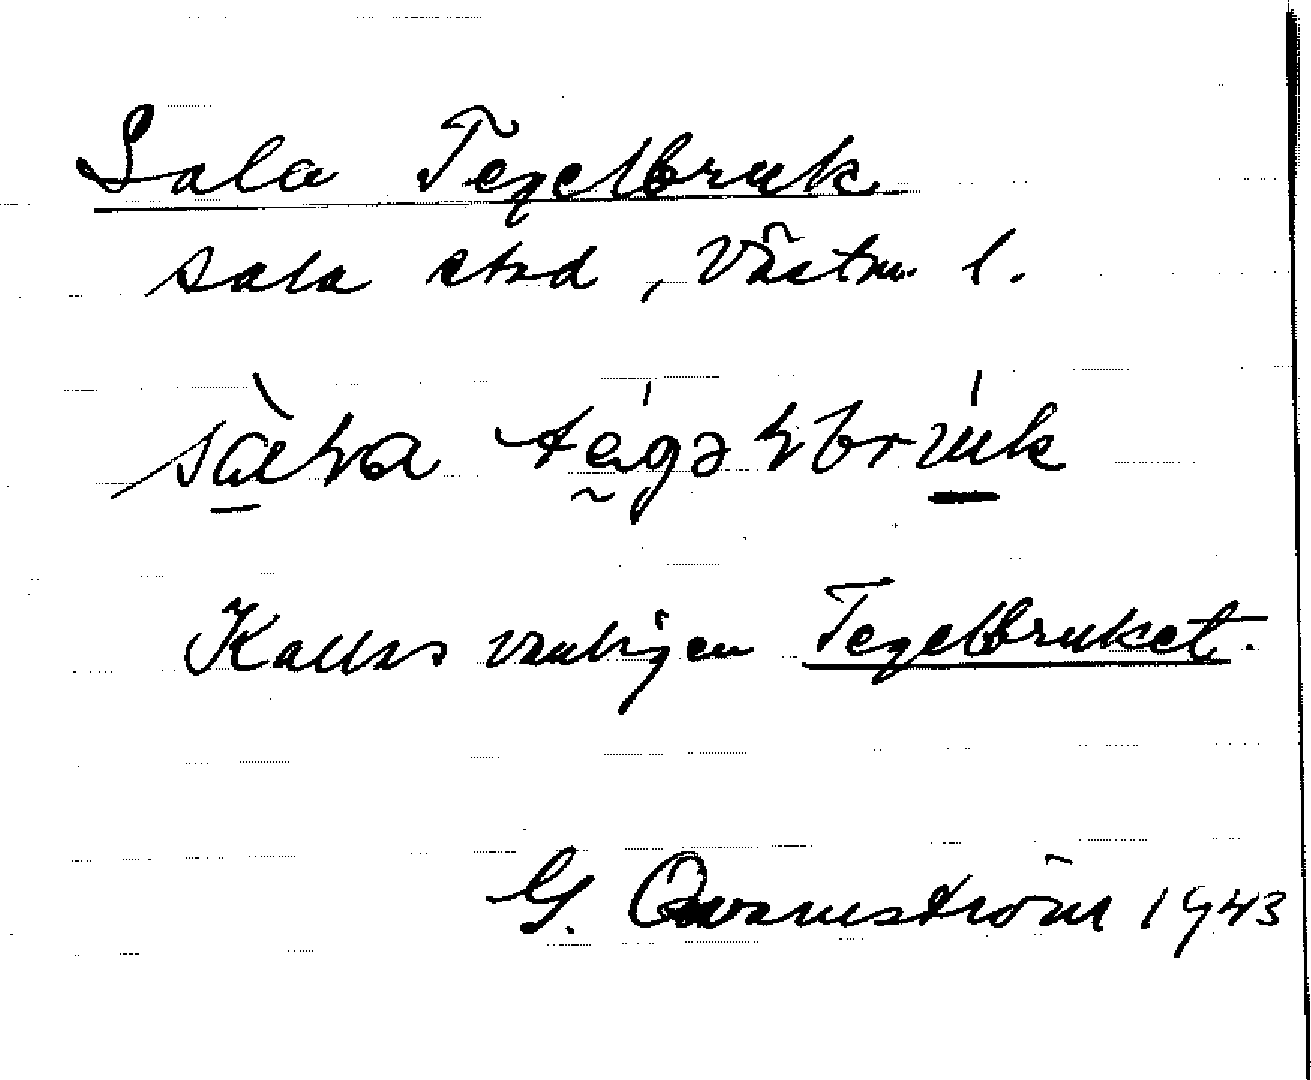 Sala Tegelbruk
Sala stad, Västm. l.
sà̱ɬa tḛ́gəɬbrú̱k
Kallas vanligen Tegelbruket.
G. Qvarnström 1943